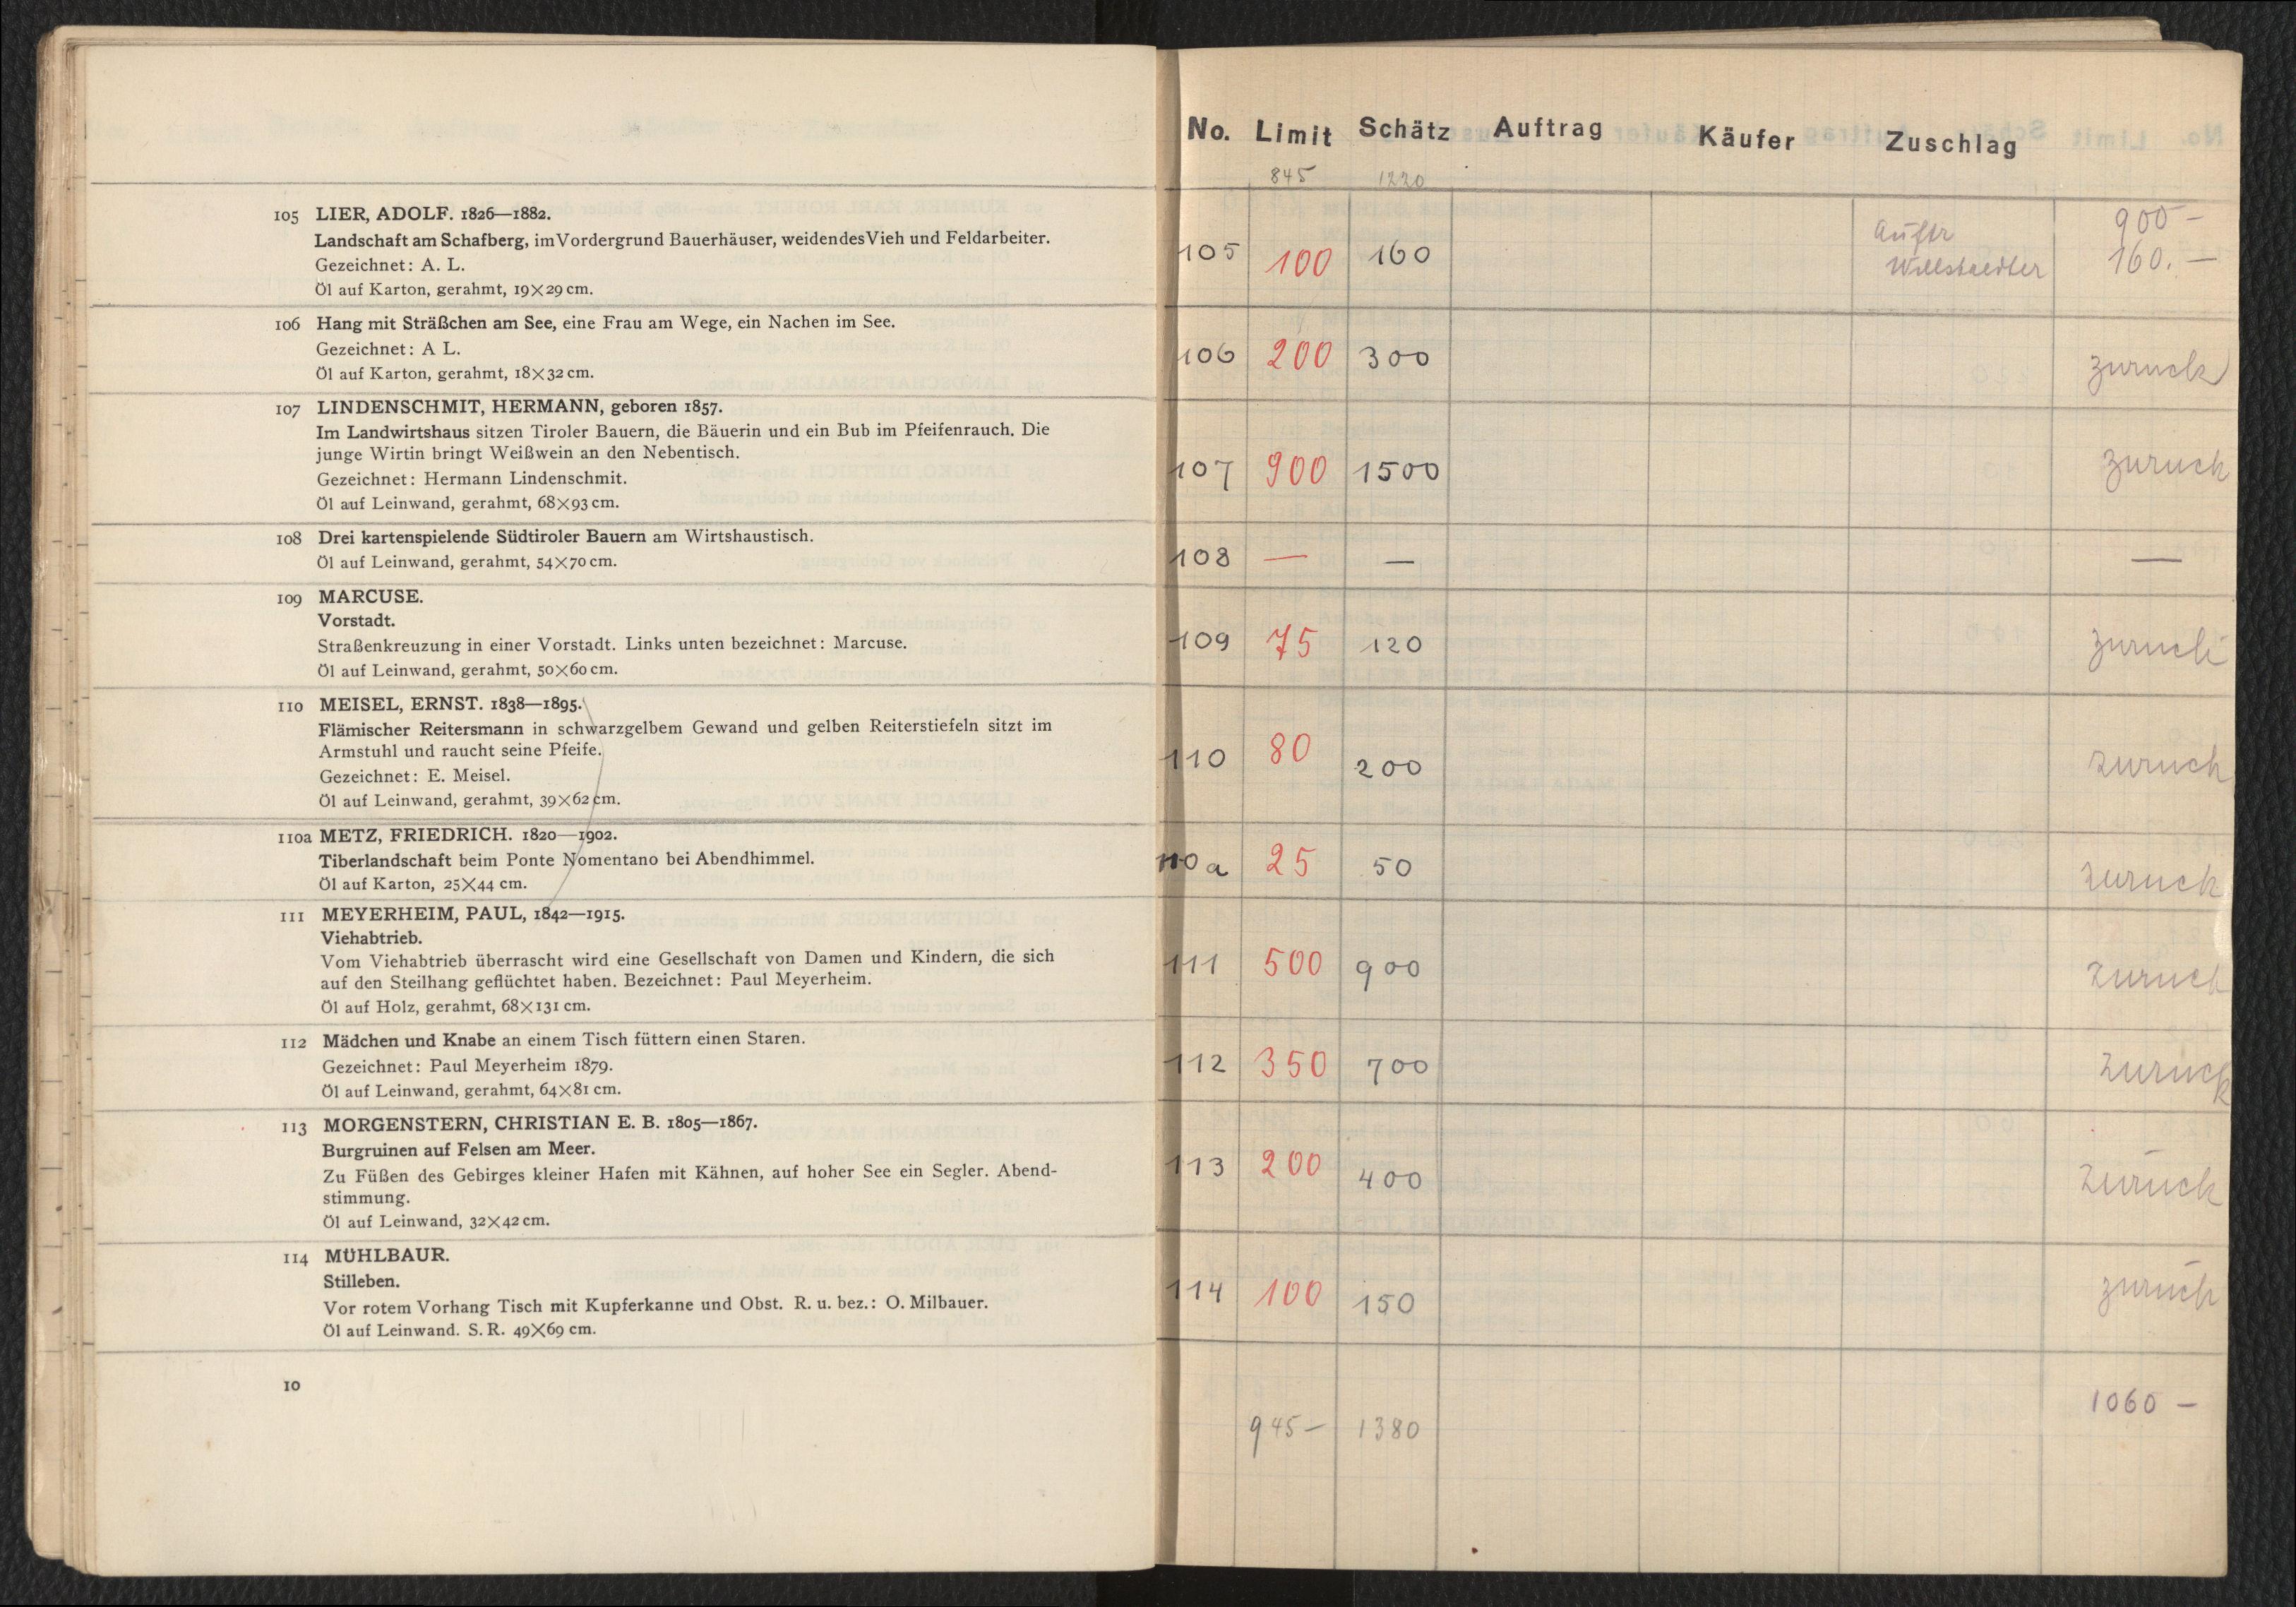 105 LIER, ADOLF. 1826—1882.
Landschaft am Schafberg, im Vordergrund Bauerhäuser, weidendes Vieh und Feldarbeiter.
Gezeichnet: A. L.
Öl auf Karton, gerahmt, 19×29 cm.
106 Hang mit Sträßchen am See, eine Frau am Wege, ein Nachen im See.
Gezeichnet: A L.
Öl auf Karton, gerahmt, 18×32 cm.
107 LINDENSCHMIT, HERMANN, geboren 1857.
Im Landwirtshaus sitzen Tiroler Bauern, die Bäuerin und ein Bub im Pfeifenrauch. Die
junge Wirtin bringt Weißwein an den Nebentisch.
Gezeichnet: Hermann Lindenschmit.
Öl auf Leinwand, gerahmt, 68×93 cm.
108 Drei kartenspielende Südtiroler Bauern am Wirtshaustisch.
Öl auf Leinwand, gerahmt, 54×70 cm.
109 MARCUSE.
Vorstadt.
Straßenkreuzung in einer Vorstadt. Links unten bezeichnet: Marcuse.
Öl auf Leinwand, gerahmt, 50×60 cm.
110 MEISEL, ERNST. 1838—1895.
Flämischer Reitersmann in schwarzgelbem Gewand und gelben Reiterstiefeln sitzt im
Armstuhl und raucht seine Pfeife.
Gezeichnet: E. Meisel.
Öl auf Leinwand, gerahmt, 39×62 cm.
110a METZ, FRIEDRICH. 1820—1902.
Tiberlandschaft beim Ponte Nomentano bei Abendhimmel.
Öl auf Karton, 25×44 cm.
111 MEYERHEIM, PAUL, 1842—1915.
Viehabtrieb.
Vom Viehabtrieb überrascht wird eine Gesellschaft von Damen und Kindern, die sich
auf den Steilhang geflüchtet haben. Bezeichnet: Paul Meyerheim.
Öl auf Holz, gerahmt, 68×131 cm.
112 Mädchen und Knabe an einem Tisch füttern einen Staren.
Gezeichnet: Paul Meyerheim 1879.
Öl auf Leinwand, gerahmt, 64×81 cm.
113 MORGENSTERN, CHRISTIAN E. B. 1805—1867.
Burgruinen auf Felsen am Meer.
Zu Füßen des Gebirges kleiner Hafen mit Kähnen, auf hoher See ein Segler. Abend-
stimmung.
Öl auf Leinwand, 32×42 cm.
114 MÜHLBAUR.
Stilleben.
Vor rotem Vorhang Tisch mit Kupferkanne und Obst. R. u. bez.: O. Milbauer.
Öl auf Leinwand. S. R. 49×69 cm.
10
No. Limit Schätz Auftrag Käufer Zuschlag
845 1220
900 —
Auftr
105 100 160 Willstaedter 160. —
106 200 300 zuruck
107 900 1500 zuruck
108 — — —
109 75 120 zuruck
110 80 200 zuruck
110a 25 50 zuruck
111 500 900 zuruck
112 350 700 zuruck
113 200 400 zuruck
114 100 150 zuruck
1060 —
945 — 1380